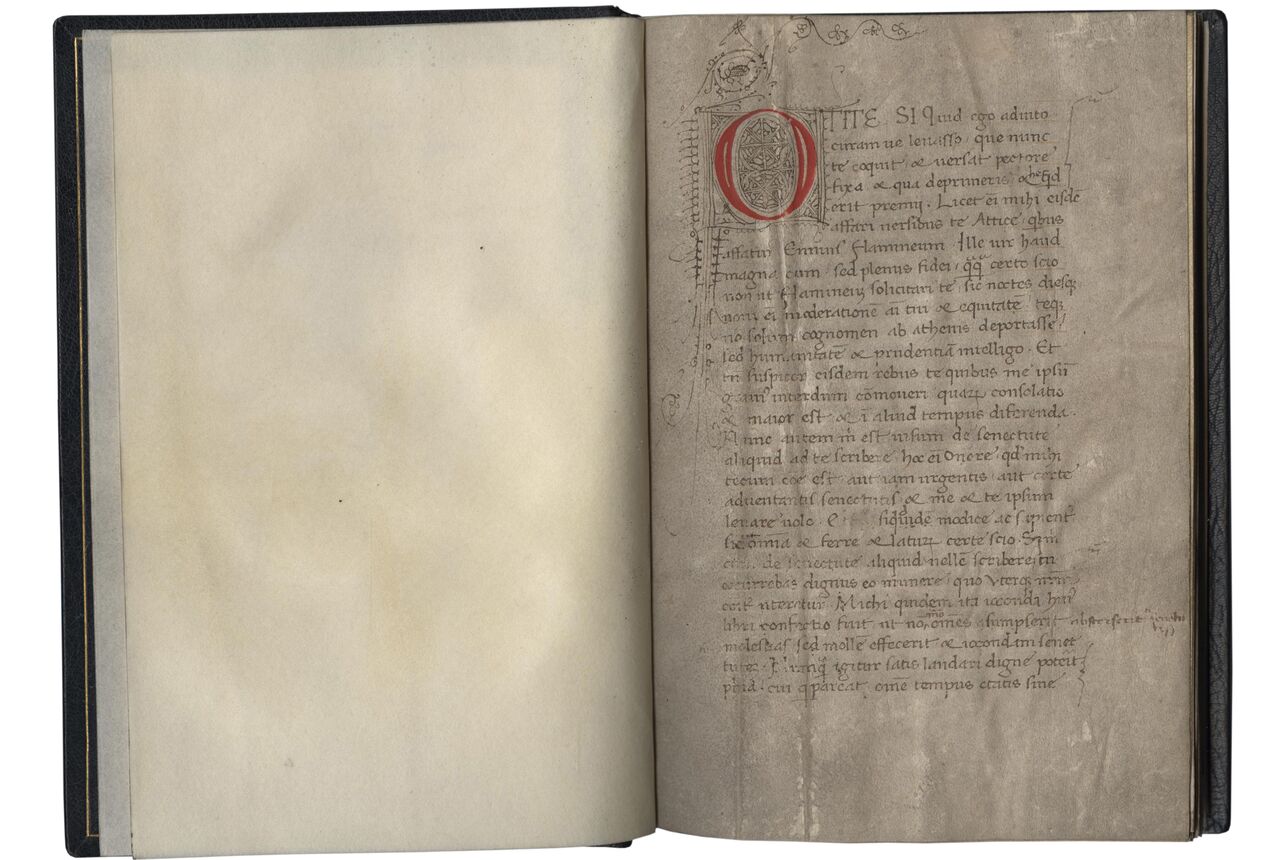 O TITE SI Quid ego adiuto
curam ve levasso, que nunc
te coquit, & versat pectore
fixa & qua deprimeris &
erit premij. Licet ei mihi eisdē
affari versibus te Attice, qbus
affatur Ennius Flamineum Ille vir haud
magna cum, sed plenus fidei, certo scio
non ut Flamineus solicitari te sic noctes diesq
novi ei moderationē ai tui & equitatē, teq
nō solum cognomen ab athenis deportasse
sed humanitatē & prudentiā intelligo. Et
tn suspicor eisdem rebus te quibus me ipsū
interdum cōmoveri quarum consolatio
& maior est & ī aliud tempus diferenda.
Nunc autem m est visum de senectute
aliquid ad te scribere hoc ei Onere, qd mihi
tecum cōe est, aut iam urgentis aut certe
adventantis senectutis & me & te ipsum
levare volo. siquidē modice ac
sic omīa & ferre & laturum certe scio. Sz m
de senectute aliquid vellē scribere, tu
occurrebas dignus eo munere, quo Vterq nrm
uteretur. Michi quidem ita iocunda huiꝰ
libri confectio fuit ut nō mō omēs asumpserit absterserit
molestias sed mollē effecerit & iocondam senec
tutē. igitur satis laudari digne poterit
phīa, cui q pareat, omē tempus etatis sine